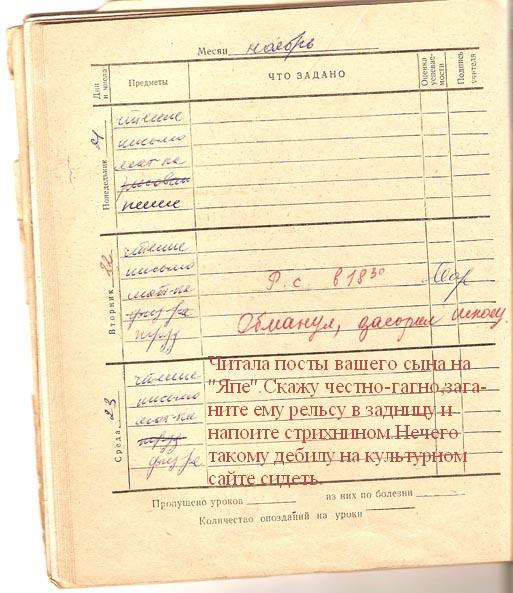 Месяц ноябрь
Дни и числа
Предметы
ЧТО ЗАДАНО
Оценка успеваемости
Подпись учителя
Понедельник 21
чтение
письмо
мат-ка
рисован
пение
Вторник 22
чтение
письмо
мат-ка
физ-ра
труд
Р. с. в 18³⁰
Обманул, засорил школу.
Среда 23
чтение
письмо
мат-ка
труд
физ-ра
Читала посты вашего сына на
"Япе".Скажу честно-гагно,зага-
ните ему рельсу в задницу и
напоите стрихнином.Нечего
такому дебилу на культурном
сайте сидеть.
Пропущено уроков из них по болезни
Количество опозданий на уроки